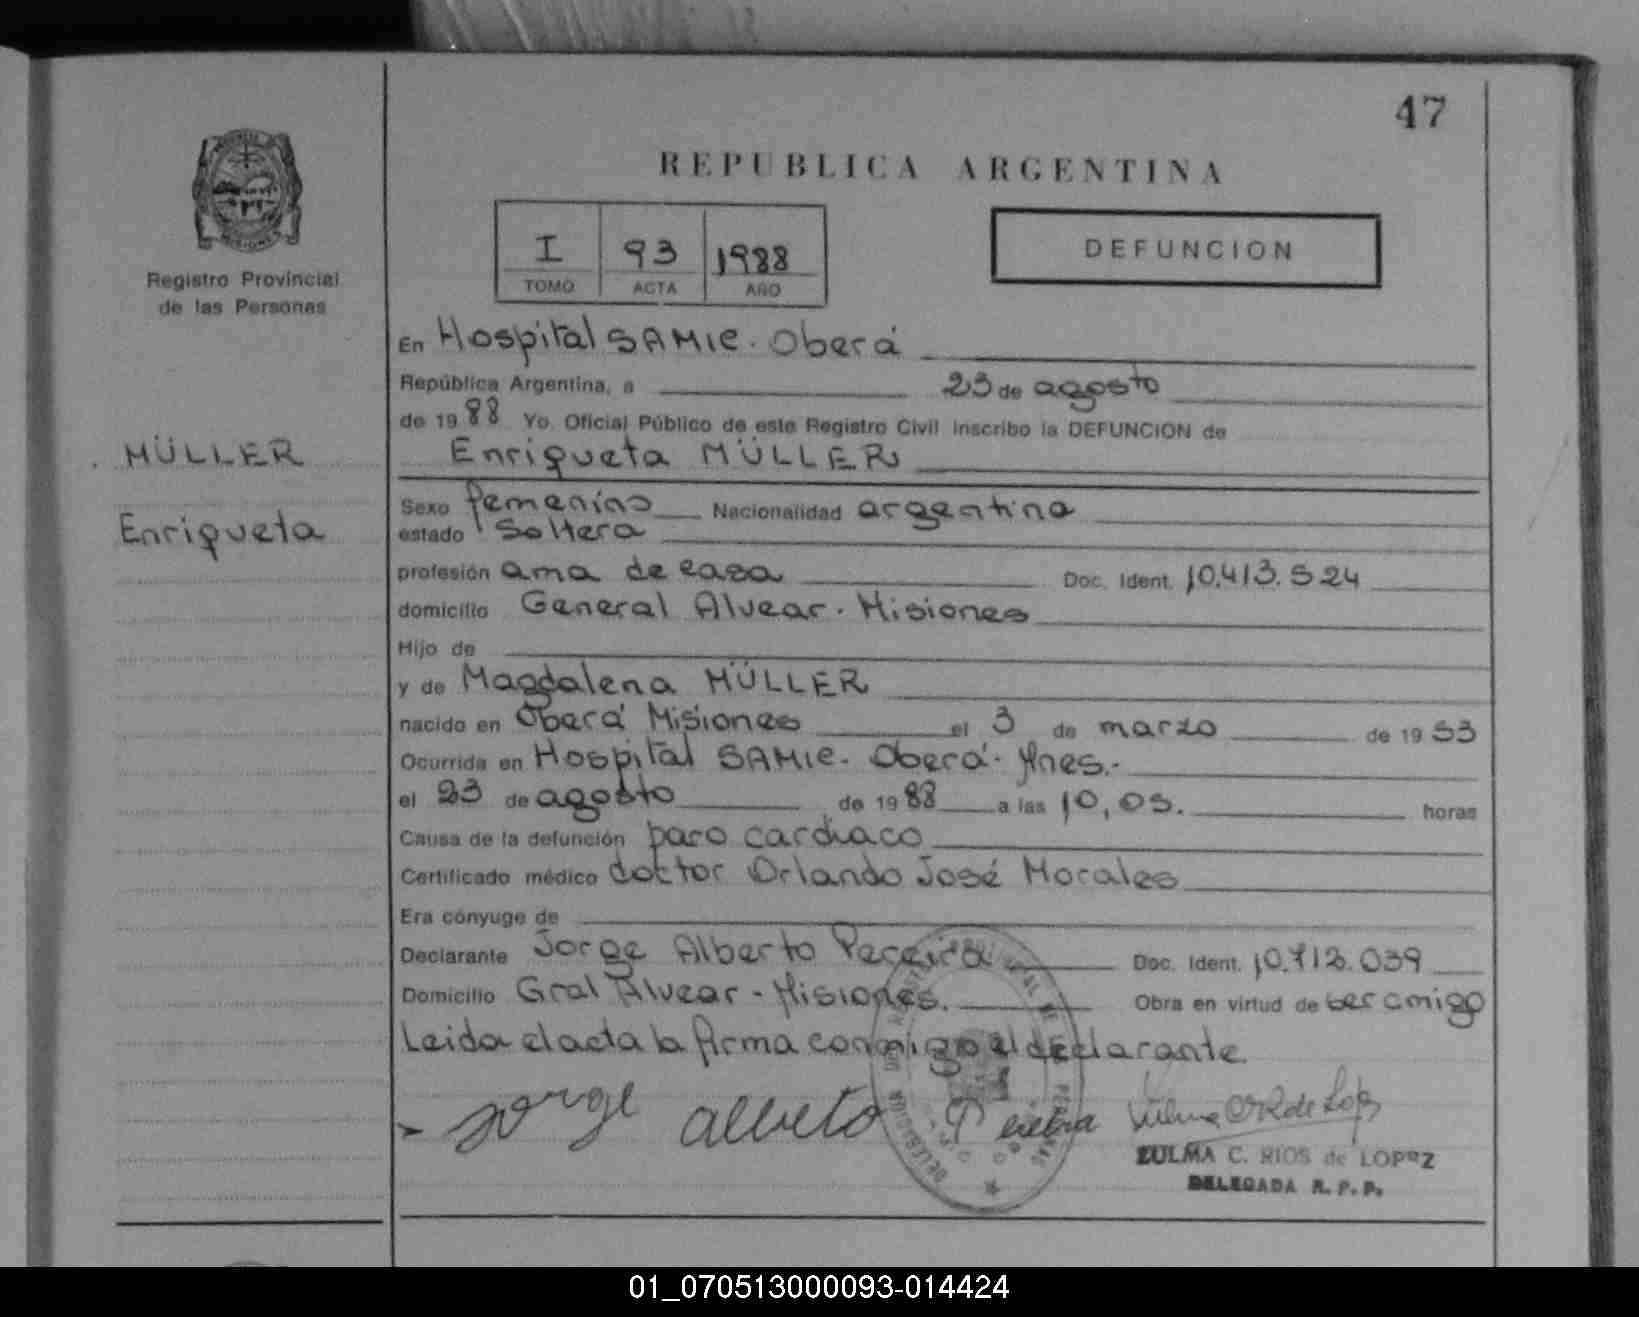 47
REPUBLICA ARGENTINA
I 93 1988
TOMO ACTA AÑO
DEFUNCION
Registro Provincial
de las Personas
MÜLLER
Enriqueta
En Hospital SAMIC. Oberá
República Argentina, a 23 de agosto
de 1988 Yo, Oficial Público de este Registro Civil inscribo la DEFUNCION de
Enriqueta MÜLLER
Sexo femenino Nacionalidad argentina
estado Soltera
profesión ama de casa Doc. Ident. 10.413.524
domicilio General Alvear. Misiones
Hijo de
y de Magdalena MÜLLER
nacido en Oberá Misiones el 3 de marzo de 1953
Ocurrida en Hospital SAMIC. Oberá. Mnes.-
el 23 de agosto de 1988 a las 10,05. horas
Causa de la defunción paro cardiaco
Certificado médico doctor Orlando José Morales
Era cónyuge de
Declarante Jorge Alberto Pereira Doc. Ident.
Domicilio Gral Alvear - Misiones. Obra en virtud de ser amigo
Leida el acta la firma conmigo el declarante.
Jorge alberto Pereira
ZULMA C. RIOS de LOPEZ
DELEGADA R. P. P.
01_070513000093-014424